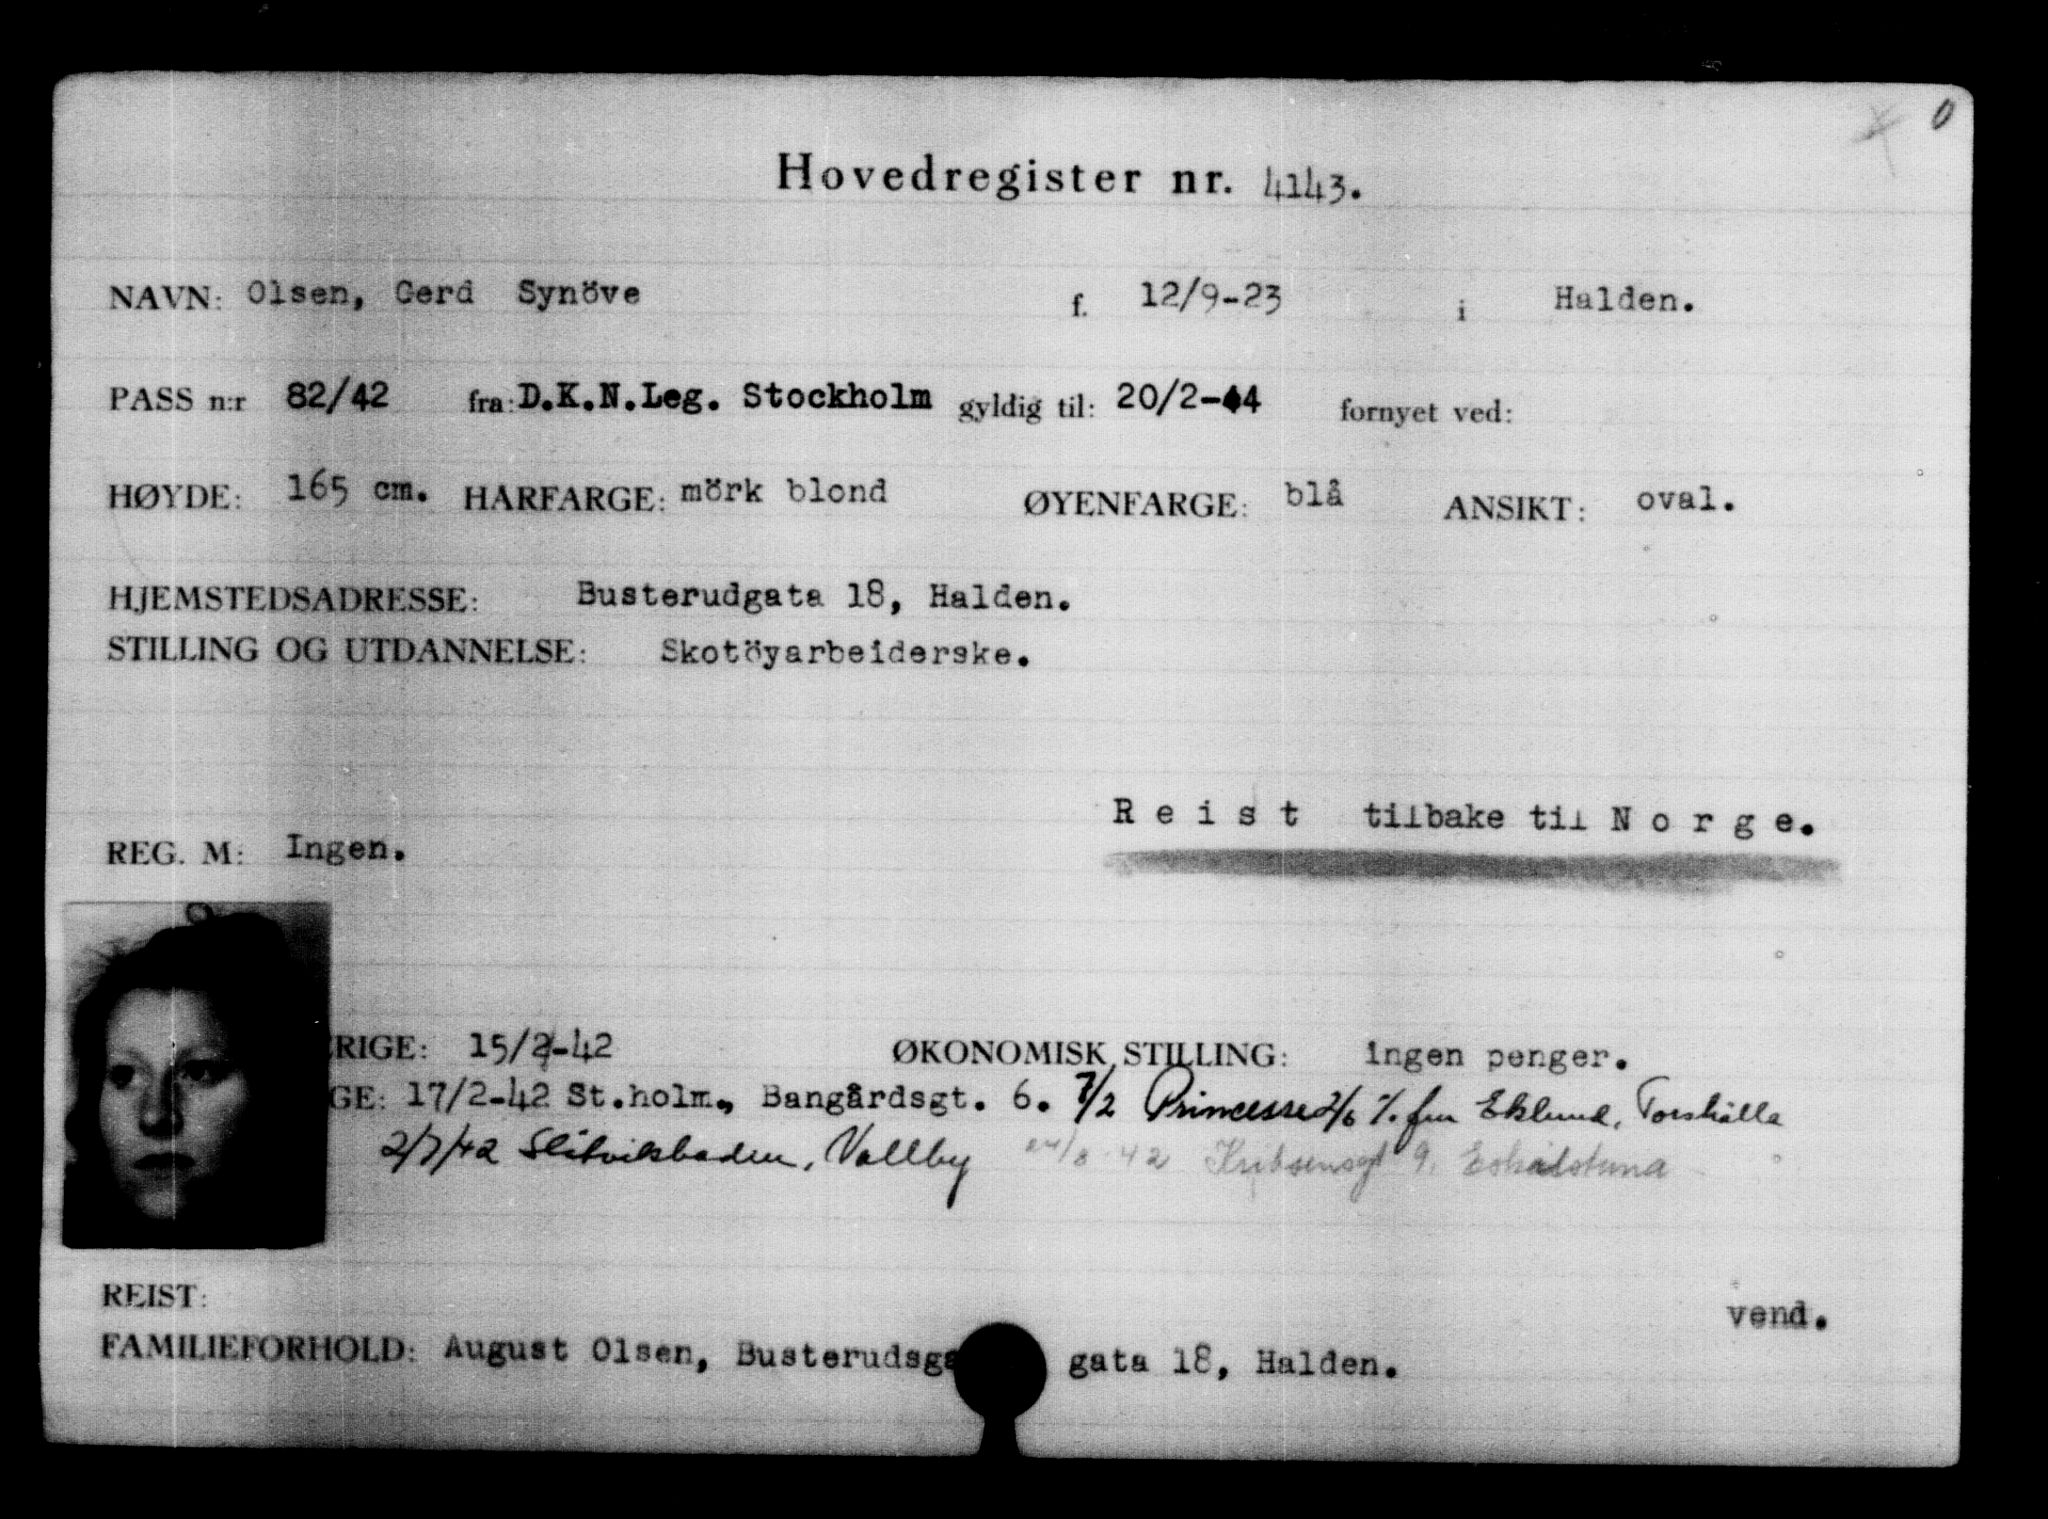 0
Hovedregister nr. 4143.
NAVN: Olsen, Gerd Synöve f. 12/9-23 i Halden.
PASS n:r 82/42 fra: D.K.N.Leg. Stockholm gyldig til: 20/2-44 fornyet ved:
HØYDE: 165 cm. HÅRFARGE: mörk blond ØYENFARGE: blå ANSIKT: oval.
HJEMSTEDSADRESSE: Busterudgata 18, Halden.
STILLING OG UTDANNELSE: Skotöyarbeiderske.
R e i s t tilbake til N o r g e.
REG. M: Ingen.
RIGE: 15/2-42 ØKONOMISK STILLING: ingen penger.
GE: 17/2-42 St.holm., Bangårdsgt. 6. 7/2 Princesse 2/6 %. fru Eklund, Torshälla
2/7/42 Slitviksbaden, Vallby 24/8-42 9, Eskilstuna
REIST: vend.
FAMILIEFORHOLD: August Olsen, Busterudsga gata 18, Halden.